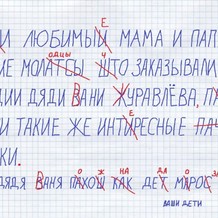 Е
И ЛЮБИМЫИ МАМА И ПАП
ОДЦЫ Ч
ИЕ МОЛАТСЫ ШТО ЗАКАЗЫВАЛИ
ДИИ ДЯДИ ВАНИ ЖУРАВЛЁВА, П
Е
И ТАКИЕ ЖЕ ИНТИРЕСНЫЕ ПАЧ
КИ.
О Ж НА ДА О З
ДЯДЯ ВАНЯ ПАХОШ КАК ДЕТ МАРОС
ВАШИ ДЕТИ